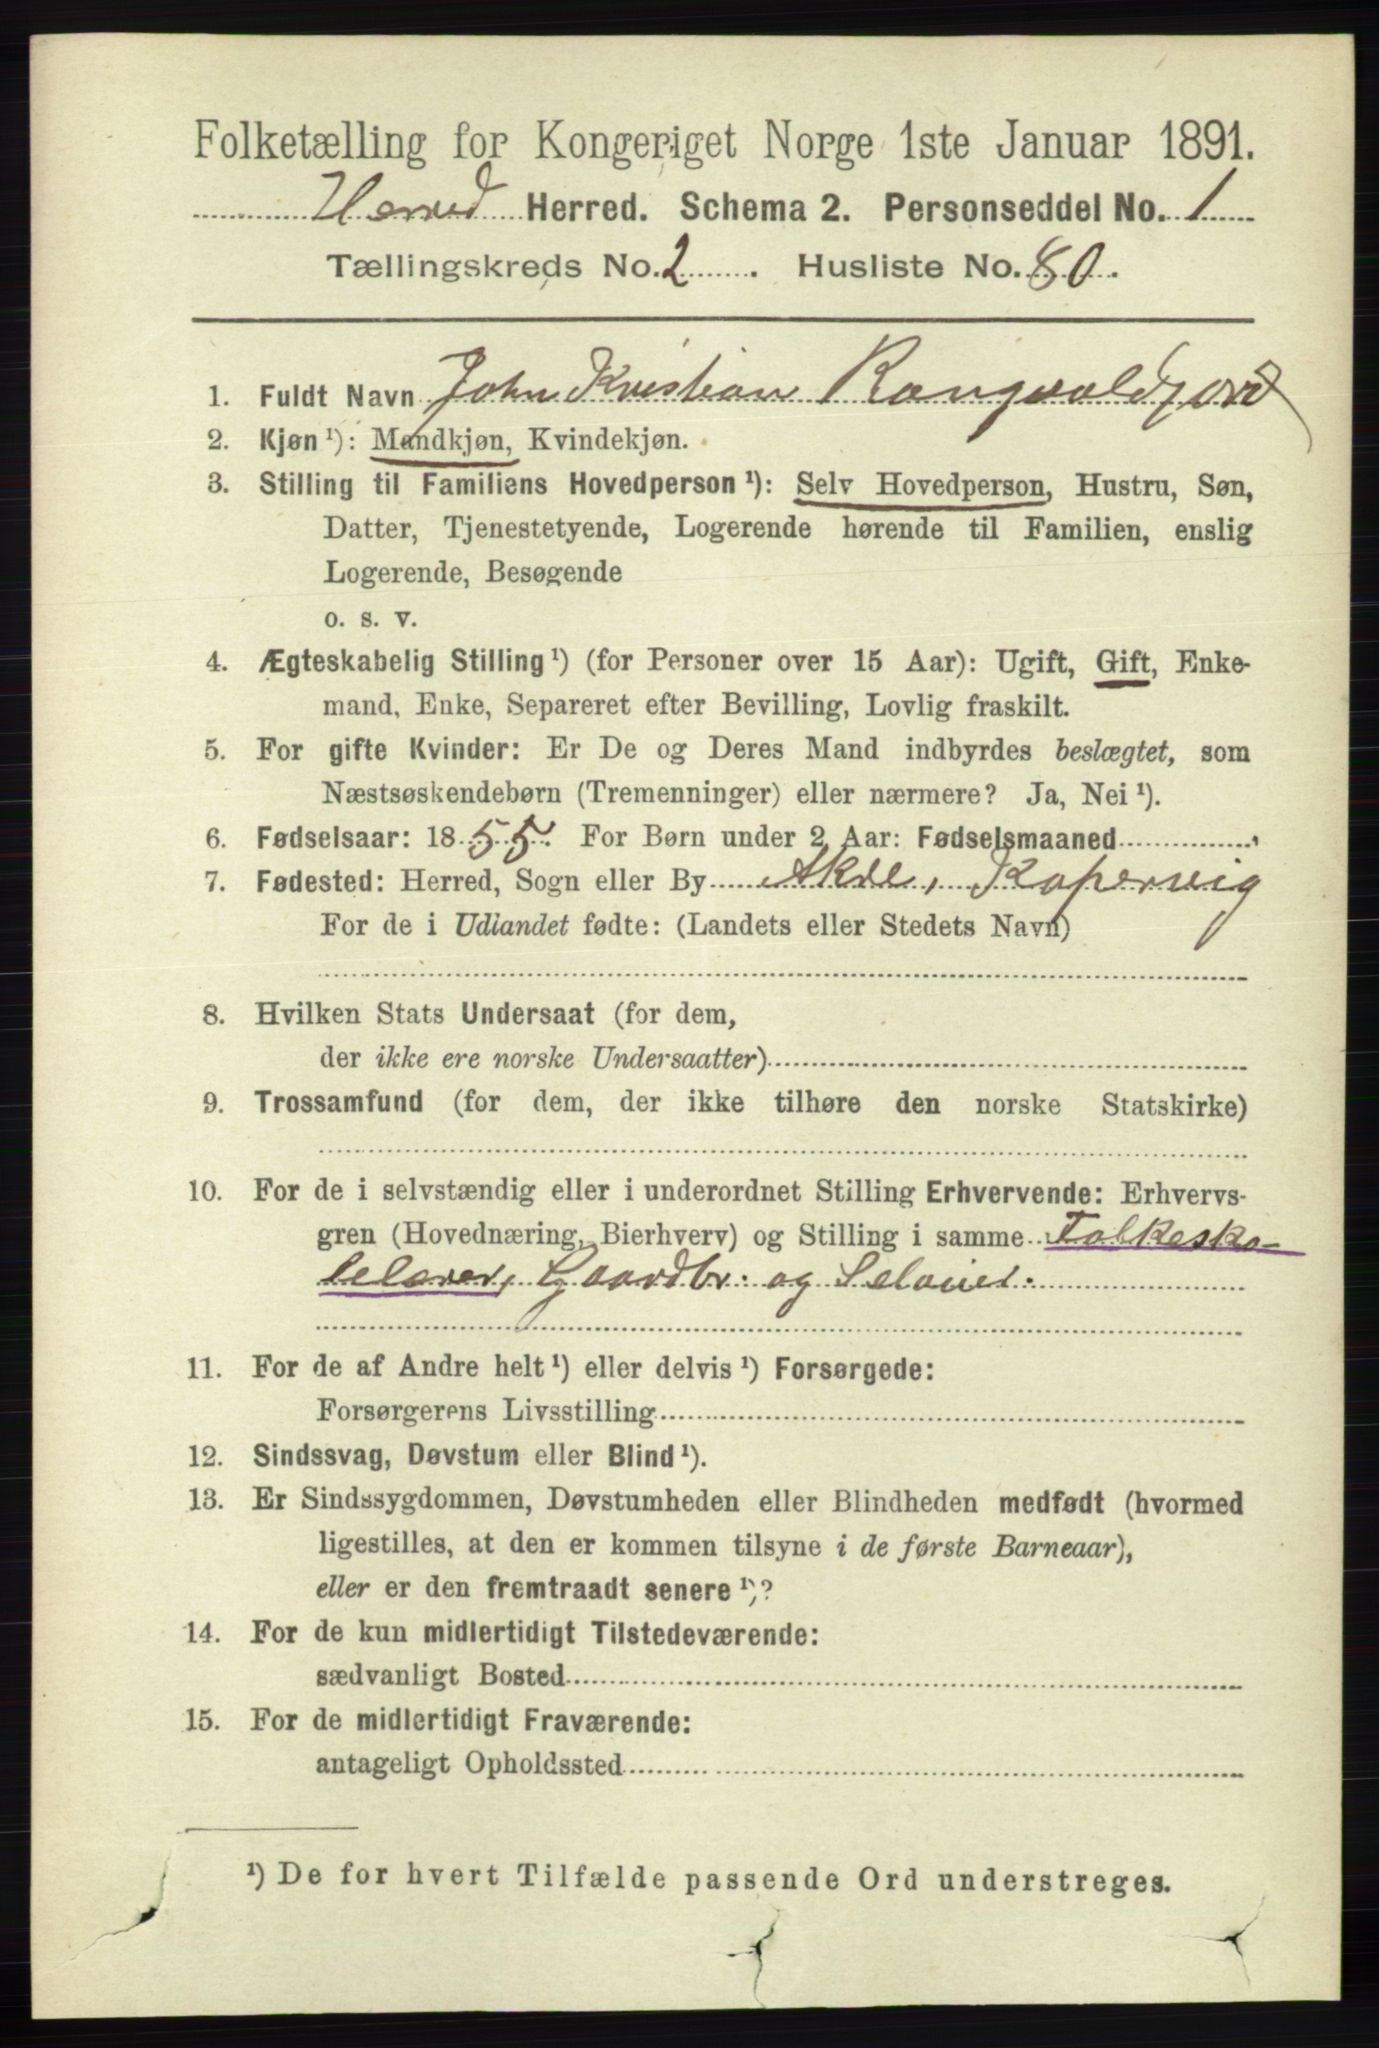 Folketælling for Kongeriget Norge 1ste Januar 1891.
Herred Herred. Schema 2. Personseddel No. 1
Tællingskreds No. 2. Husliste No. 80.
1. Fuldt Navn John Kristian Rangvaldzord
2. Kjøn ¹): Mandkjøn, Kvindekjøn.
3. Stilling til Familiens Hovedperson ¹): Selv Hovedperson, Hustru, Søn,
Datter, Tjenestetyende, Logerende hørende til Familien, enslig
Logerende, Besøgende
o. s. v.
4. Ægteskabelig Stilling ¹) (for Personer over 15 Aar): Ugift, Gift, Enke-
mand, Enke, Separeret efter Bevilling, Lovlig fraskilt.
5. For gifte Kvinder: Er De og Deres Mand indbyrdes beslægtet, som
Næstsøskendebørn (Tremenninger) eller nærmere? Ja, Nei ¹).
6. Fødselsaar: 1855. For Børn under 2 Aar: Fødselsmaaned
7. Fødested: Herred, Sogn eller By Akre, Kopervig
For de i Udlandet fødte: (Landets eller Stedets Navn)
8. Hvilken Stats Undersaat (for dem,
der ikke ere norske Undersaatter)
9. Trossamfund (for dem, der ikke tilhøre den norske Statskirke)
10. For de i selvstændig eller i underordnet Stilling Erhvervende: Erhvervs-
gren (Hovednæring, Bierhverv) og Stilling i samme Folkesko-
lelærer, Gaardbr. og Seloier.
11. For de af Andre helt ¹) eller delvis ¹) Forsørgede:
Forsørgerens Livsstilling
12. Sindssvag, Døvstum eller Blind ¹).
13. Er Sindssygdommen, Døvstumheden eller Blindheden medfødt (hvormed
ligestilles, at den er kommen tilsyne i de første Barneaar),
eller er den fremtraadt senere ¹)?
14. For de kun midlertidigt Tilstedeværende:
sædvanligt Bosted
15. For de midlertidigt Fraværende:
antageligt Opholdssted
¹) De for hvert Tilfælde passende Ord understreges.